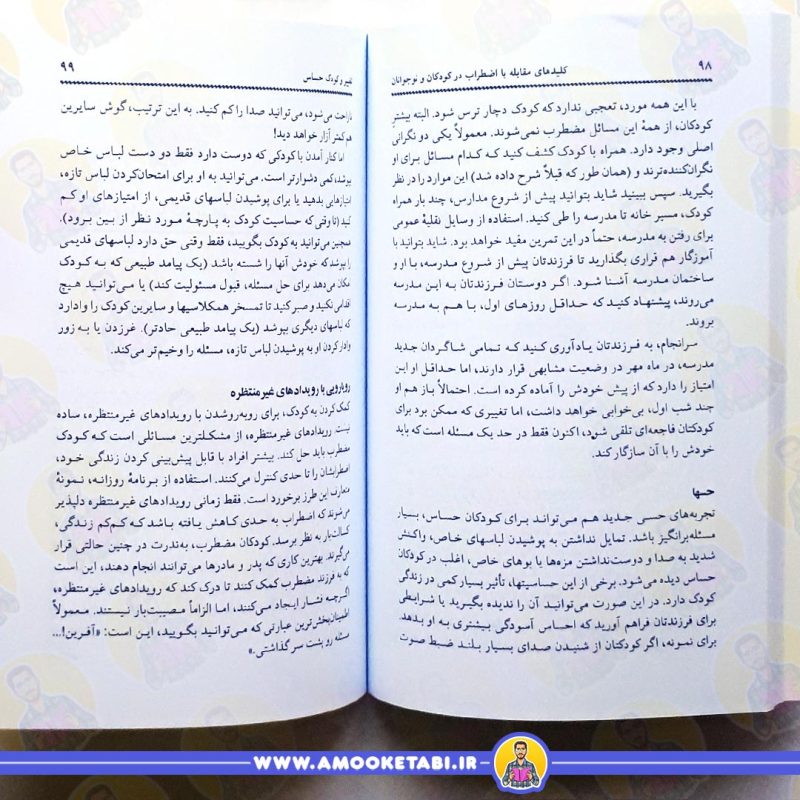 ۹۸
کلیدهای مقابله با اضطراب در کودکان و نوجوانان
با این همه مورد، تعجبی ندارد که کودک دچار ترس شود. البته بیشتر
کودکان، از همهٔ این مسائل مضطرب نمی‌شوند. معمولاً یکی دو نگرانی
اصلی وجود دارد. همراه با کودک کشف کنید که کدام مسائل برای او
نگران‌کننده‌ترند و (همان طور که قبلاً شرح داده شد) این موارد را در نظر
بگیرید. سپس ببینید شاید بتوانید پیش از شروع مدارس، چند بار همراه
کودک، مسیر خانه تا مدرسه را طی کنید. استفاده از وسایل نقلیهٔ عمومی
برای رفتن به مدرسه، حتماً در این تمرین مفید خواهد برد. شاید بتوانید با
آموزگار هم قراری بگذارید تا فرزندتان پیش از شروع مدرسه، با او و
ساختمان مدرسه آشنا شود. اگر دوستان فرزندتان به این مدرسه
می‌روند، پیشنهاد کنید که حداقل روزهای اول، با هم به مدرسه
بروند.
سرانجام، به فرزندتان یادآوری کنید که تمامی شاگردان جدید
مدرسه، در ماه مهر در وضعیت مشابهی قرار دارند، اما حداقل او این
امتیاز را دارد که از پیش خودش را آماده کرده است. احتمالاً باز هم او
چند شب اول، بی‌خوابی خواهد داشت، اما تغییری که ممکن بود برای
کودکتان فاجعه‌ای تلقی شود، اکنون فقط در حد یک مسئله است که باید
خودش را با آن سازگار کند.
حسها
تجربه‌های حسی جدید هم می‌تواند برای کودکان حساس، بسیار
مسئله‌برانگیز باشد. تمایل نداشتن به پوشیدن لباسهای خاص، واکنش
شدید به صدا و دوست‌نداشتن مزه‌ها یا بوهای خاص، اغلب در کودکان
حساس دیده می‌شود. برخی از این حساسیتها، تأثیر بسیار کمی در زندگی
کودک دارد. در این صورت می‌توانید آن را ندیده بگیرید یا شرایطی
برای فرزندتان فراهم آورید که احساس آسودگی بیشتری به او بدهد.
برای نمونه، اگر کودکتان از شنیدن صدای بسیار بلند ضبط صوت
تغییر و کودک حساس
۹۹
ناراحت می‌شود، می‌توانید صدا را کم کنید. به این ترتیب، گوش سایرین
هم کمتر آزار خواهد دید!
اما کنار آمدن با کودکی که دوست دارد فقط دو دست لباس خاص
بپوشد، کمی دشوارتر است. می‌توانید به او برای امتحان‌کردن لباس تازه،
امتیازهایی بدهید یا برای پوشیدن لباسهای قدیمی، از امتیازهای او کم
کنید (تا وقتی که حساسیت کودک به پارچهٔ مورد نظر از بین برود).
همچنین می‌توانید به کودک بگویید، فقط وقتی حق دارد لباسهای قدیمی
را بپوشد که خودش آنها را شسته باشد (یک پیامد طبیعی که به کودک
امکان می‌دهد برای حل مسئله، قبول مسئولیت کند) یا می‌توانید هیچ
اقدامی نکنید و صبر کنید تا تمسخر همکلاسیها و سایرین کودک را وادارد
که لباسهای دیگری بپوشد (یک پیامد طبیعی حادتر). غرزدن یا به زور
وادار کردن او به پوشیدن لباس تازه، مسئله را وخیم‌تر می‌کند.
رویارویی با رویدادهای غیرمنتظره
کمک کردن به کودک، برای روبه‌روشدن با رویدادهای غیرمنتظره، ساده
نیست. رویدادهای غیرمنتظره، از مشکلترین مسائلی است که کودک
مضطرب باید حل کند. بیشتر افراد با قابل پیش‌بینی کردن زندگی خود،
اضطرابشان را تا حدی کنترل می‌کنند. استفاده از برنامهٔ روزانه، نمونهٔ
متعارف این طرز برخورد است. فقط زمانی رویدادهای غیرمنتظره دلپذیر
می‌شوند که اضطراب به حدی کاهش یافته باشد که کم‌کم زندگی،
کسالت‌بار به نظر برسد. کودکان مضطرب، به‌ندرت در چنین حالتی قرار
می‌گیرند. بهترین کاری که پدر و مادرها می‌توانند انجام دهند، این است
که به فرزند مضطرب کمک کنند تا درک کند که رویدادهای غیرمنتظره،
اگرچه فشار ایجاد می‌کنند، اما الزاماً مصیبت‌بار نیستند. معمولاً
اطمینان‌بخش‌ترین عبارتی که می‌توانید بگویید، این است: «آفرین!...
مسئله رو پشت سر گذاشتی.»
WWW.AMOOKETABI.IR